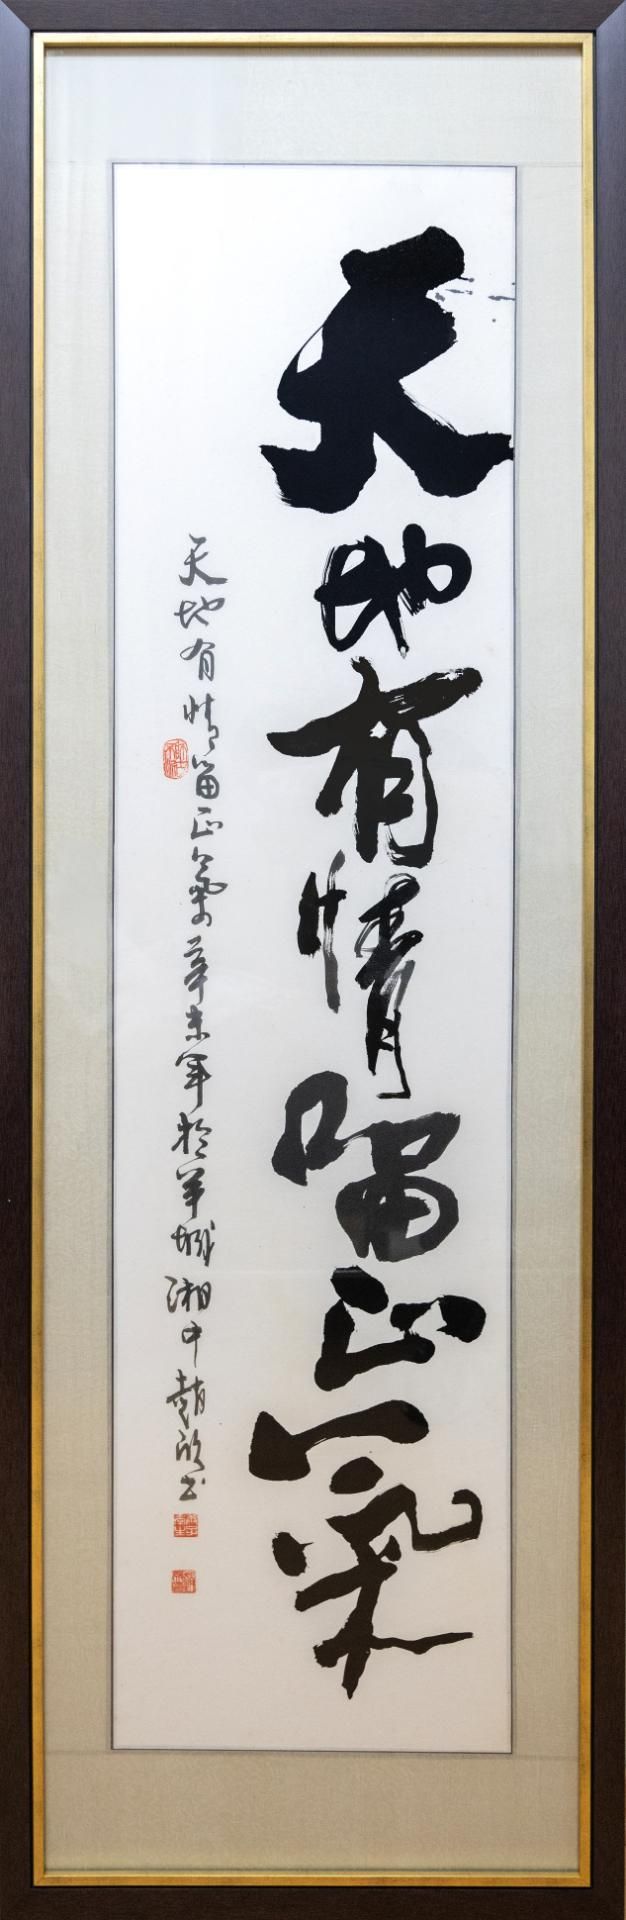 天地有情留正氣
天地有情留正氣辛未年於羊城湘中趙欣书